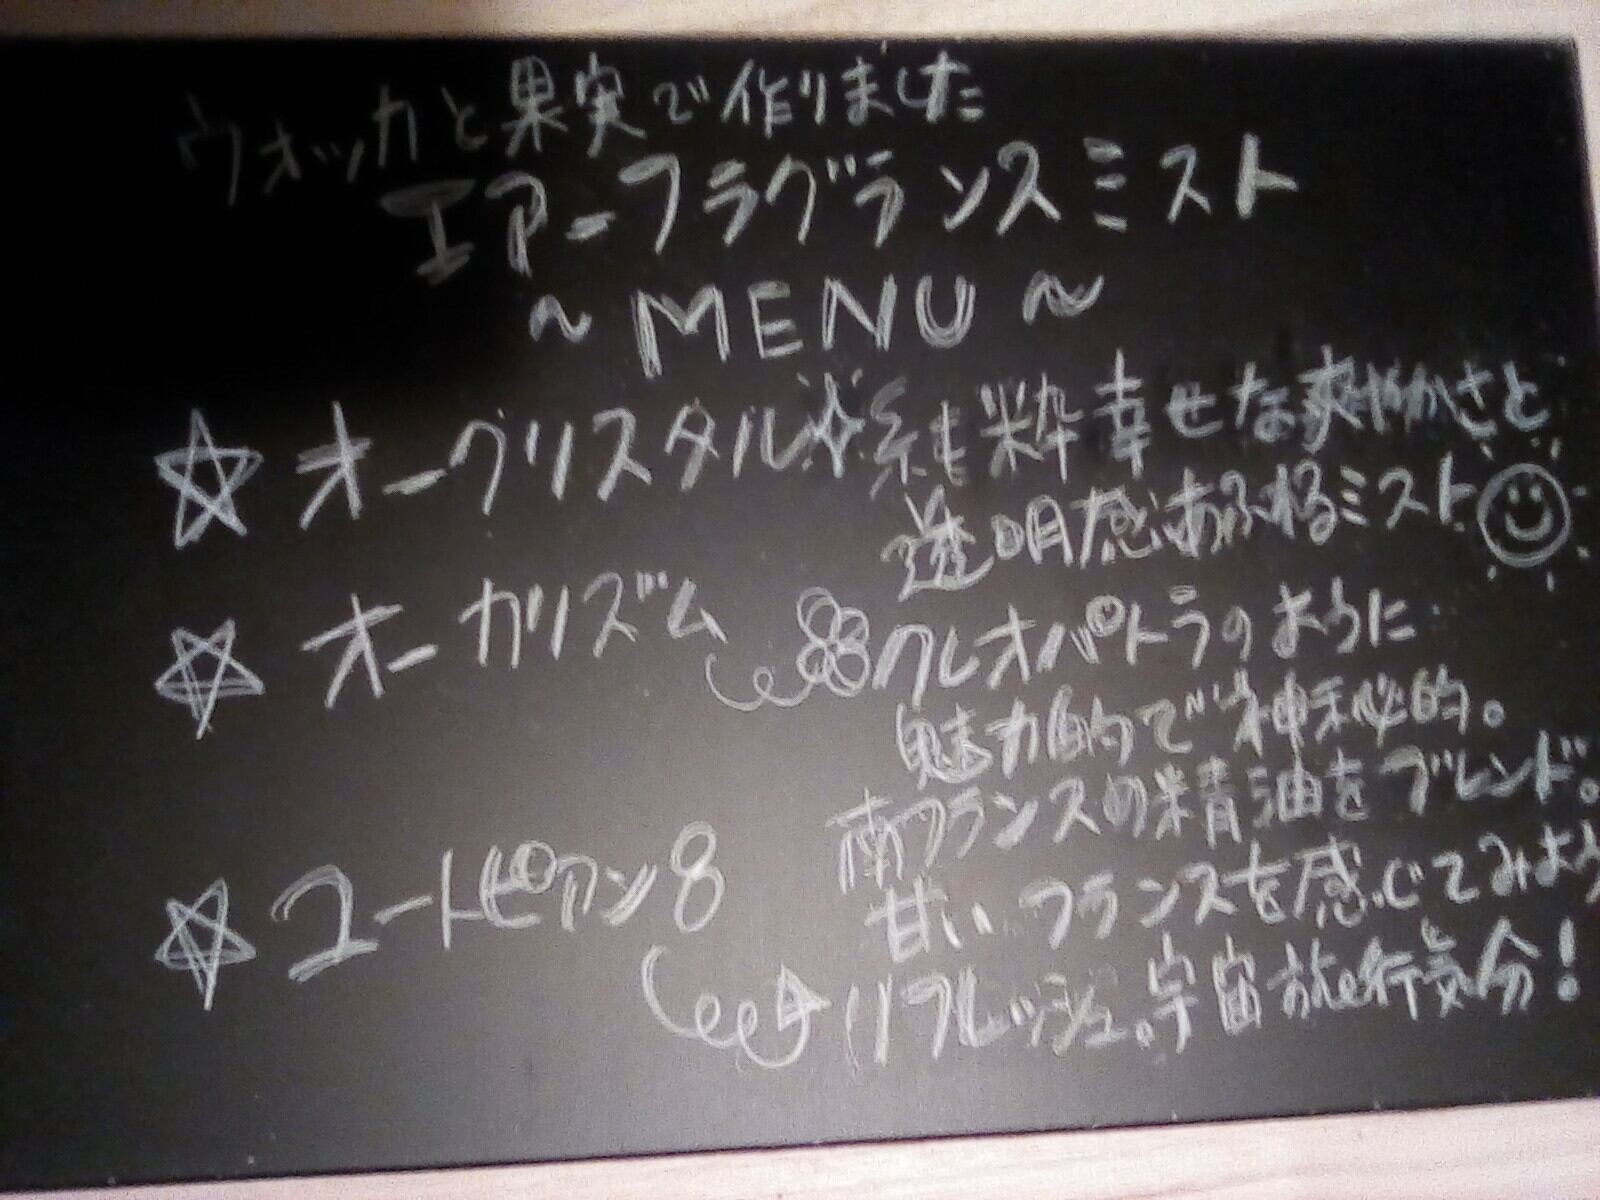 ウォッカと果実で作りました
エアーフラグランスミスト
~MENU~
☆オークリスタル 純粋幸せな爽やかさと
透明感あふれるミスト
☆オーガリズム クレオパトラのように
魅力的で神秘的。
南フランスの精油をブレンド。
甘いフランスを感じてみよう
☆ユートピアン8 リフレッシュ。宇宙旅行気分!